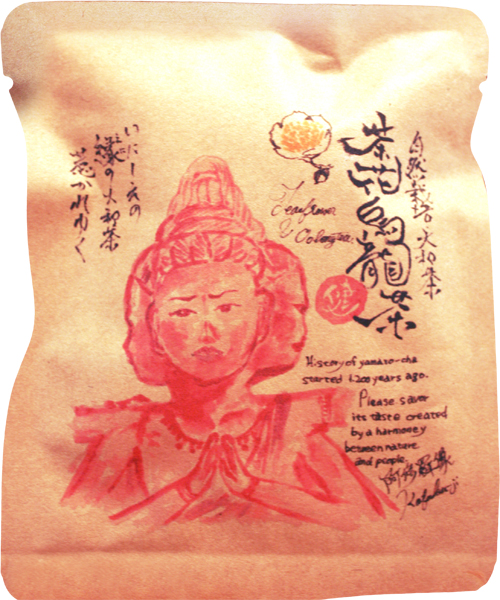 自然栽培大和茶
茶花烏龍茶
Teaflower
Oolongtea
いにしえの
の大和茶
花かれゆく
History of yamato-cha
started 1200 years ago.
Please savor
its taste created
by a harmoney
between nature
and people.
阿修羅像
Kofukuji